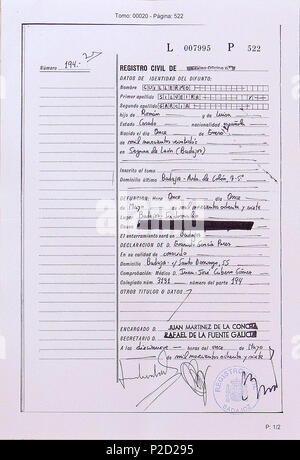 Tomo: 00020 - Página: 522
L 007995 P 522
Número 194.-
REGISTRO CIVIL DE
DATOS DE IDENTIDAD DEL DIFUNTO:
Nombre GUILLERMO
Primer apellido SILVEIRA
Segundo apellido GARCIA
hijo de Román y de Luisa
Estado Casado nacionalidad
Nacido el día Once de Enero
de mil novecientos veintidós
en Segura de León (Badajoz)
Inscrito al tomo
Domicilio último Badajoz - Avda. de Colón, 9-5º
DEFUNCION: Hora Once día Once
de Mayo mil novecientos ochenta y siete
Lugar Badajoz
Causa
El enterramiento será en Badajoz
DECLARACION DE D. García Pérez
En su calidad de
Domicilio Badajoz - c/ Santo Domingo, 55
Comprobación: Médico D. Juan-José Cubero Gómez
Colegiado núm. 3191 número del parte 194
OTROS TITULOS O DATOS
ENCARGADO D. JUAN MARTINEZ DE LA CONCHA
SECRETARIO D. RAFAEL DE LA FUENTE GAUCIA
A las diecinueve horas del once de Mayo
de mil novecientos ochenta y siete
REGISTRO
BADAJOZ
P: 1/2
alamy